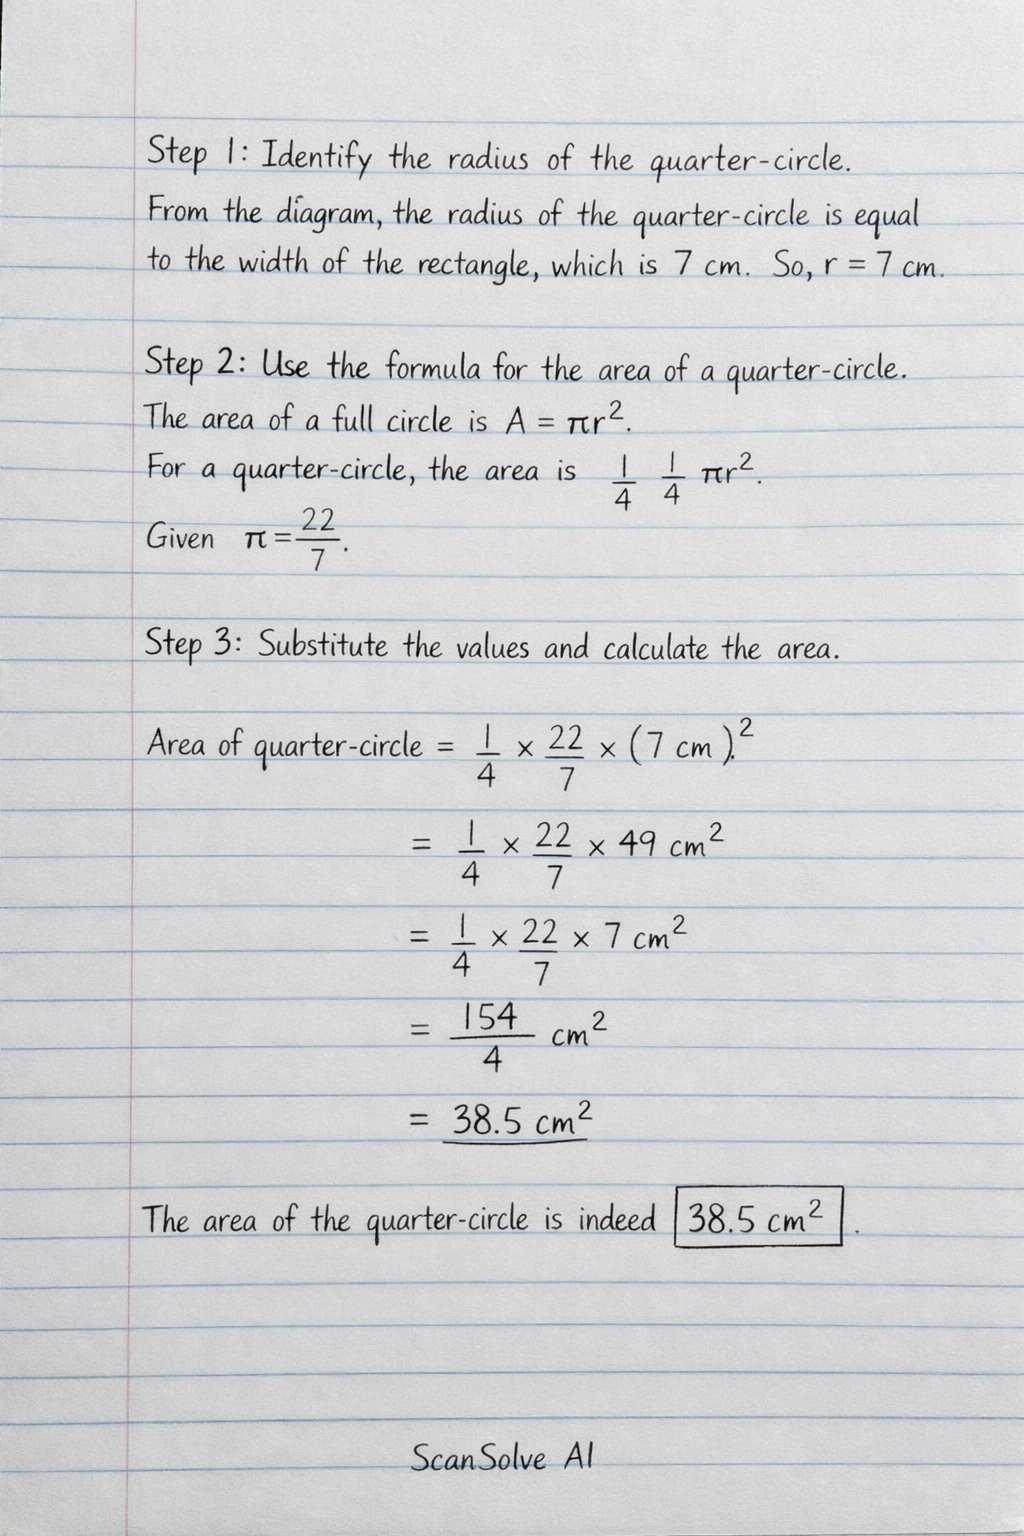 Step 1: Identify the radius of the quarter-circle.
From the diagram, the radius of the quarter-circle is equal
to the width of the rectangle, which is 7 cm. So, r = 7 cm.
Step 2: Use the formula for the area of a quarter-circle.
The area of a full circle is A = πr².
For a quarter-circle, the area is 1/4 1/4 πr².
Given π = 22/7.
Step 3: Substitute the values and calculate the area.
Area of quarter-circle = 1/4 × 22/7 × (7 cm).²
= 1/4 × 22/7 × 49 cm²
= 1/4 × 22/7 × 7 cm²
= 154/4 cm²
= 38.5 cm²
The area of the quarter-circle is indeed 38.5 cm².
ScanSolve AI